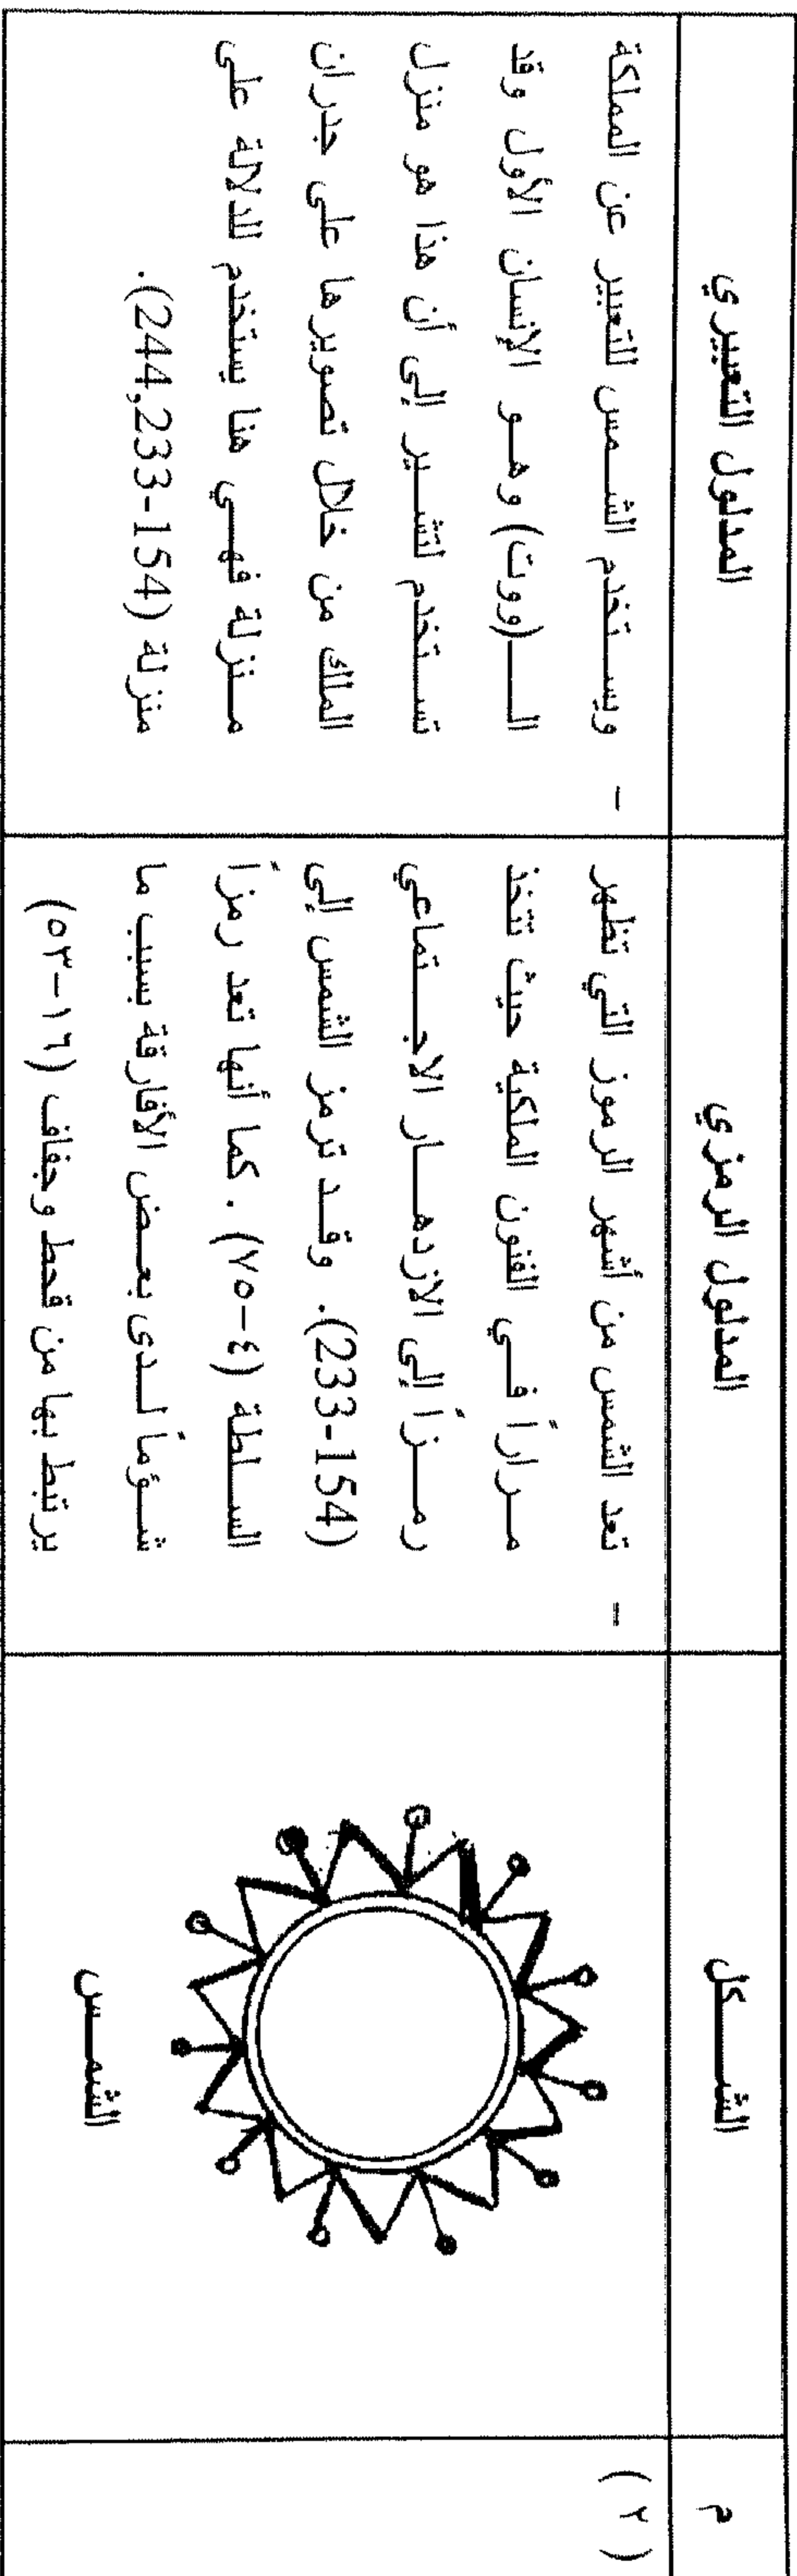 م
الشكل
المدلول الرمزي
المدلول التعبيري
(٢)
الشمس
- تعد الشمس من أشهر الرموز التي تظهر
مراراً في الفنون الملكية حيث تتخذ
رمزاً إلى الازدهار الاجتماعي
(233-154). وقد ترمز الشمس إلى
السلطة (٤-٧٥). كما أنها تعد رمزاً
شؤماً لدى بعض الأفارقة بسبب ما
يرتبط بها من قحط وجفاف (١٦-٥٣)
- ويستخدم الشمس للتعبير عن المملكة
الـ(ووت) وهو الإنسان الأول وقد
تستخدم لتشير إلى أن هذا هو منزل
الملك من خلال تصويرها على جدران
منزله فهي هنا يستخدم للدلالة على
منزلة (244,233-154).